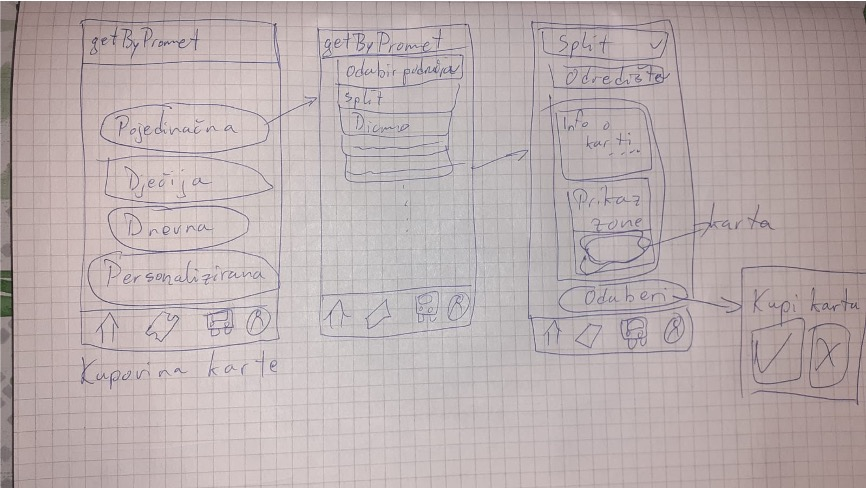 getByPromet
Pojedinačna
Dječija
Dnevna
Personalizirana
Kupovina karte
getByPromet
Odabir područja
Split
Diamo
Split
Odredište
Info o
karti
Prikaz
zone
karta
Odaberi
Kupi kartu